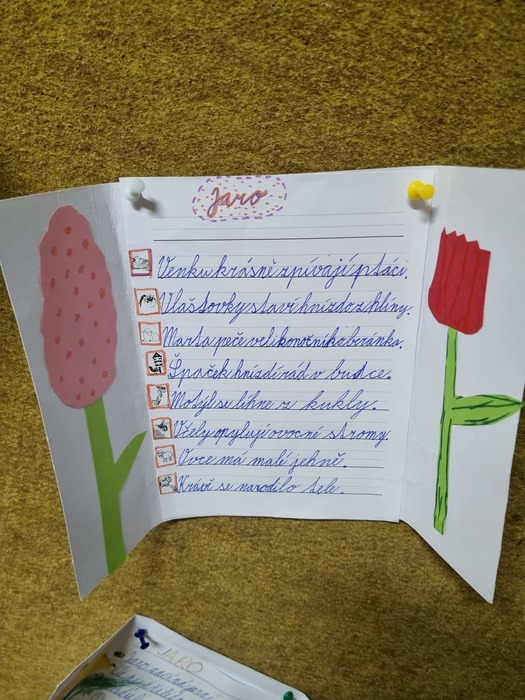 Jaro
Venku krásně zpívají ptáci.
Vlaštovky staví hnízdo z hlíny.
Marta peče velikonočního beránka.
Špaček hnízdí rád v budce.
Motýl se líhne z kukly.
Včely opylují ovocné stromy.
Ovce má malé jehně.
Krávě se narodilo tele.
JARO